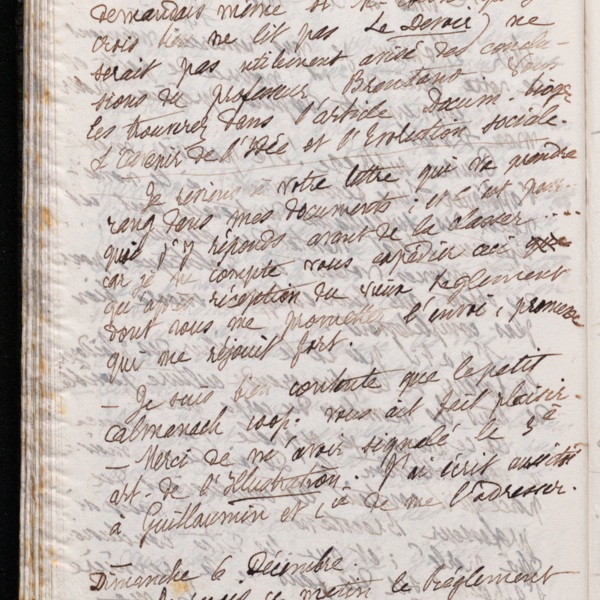 demandais même si
crois bien ne lit pas Le Devoir) ne
serait pas utilement avisé des conclu-
sions du professeur Brentano. Vous
les trouverez dans l'article Docum. biogr
L'avenir de l'Idée et l'Evolution sociale.
Je reviens à votre lettre qui va prendre
rang dans mes documents; et c'est pour-
quoi j'y réponds avant de la classer....
car je ne compte vous expédier ceci
qu'après réception du vieux Règlement
dont vous me promettez l'envoi, promesse
qui me réjouit fort.
- Je suis bien contente que le petit
almanach coop. vous ait fait plaisir.
- Merci de m'avoir signalé le
art. de l'Illustration. J'ai écrit aussitôt
à Guillaumin et Cie de me l'adresser.
Dimanche 6 Décembre.
ce matin le Règlement